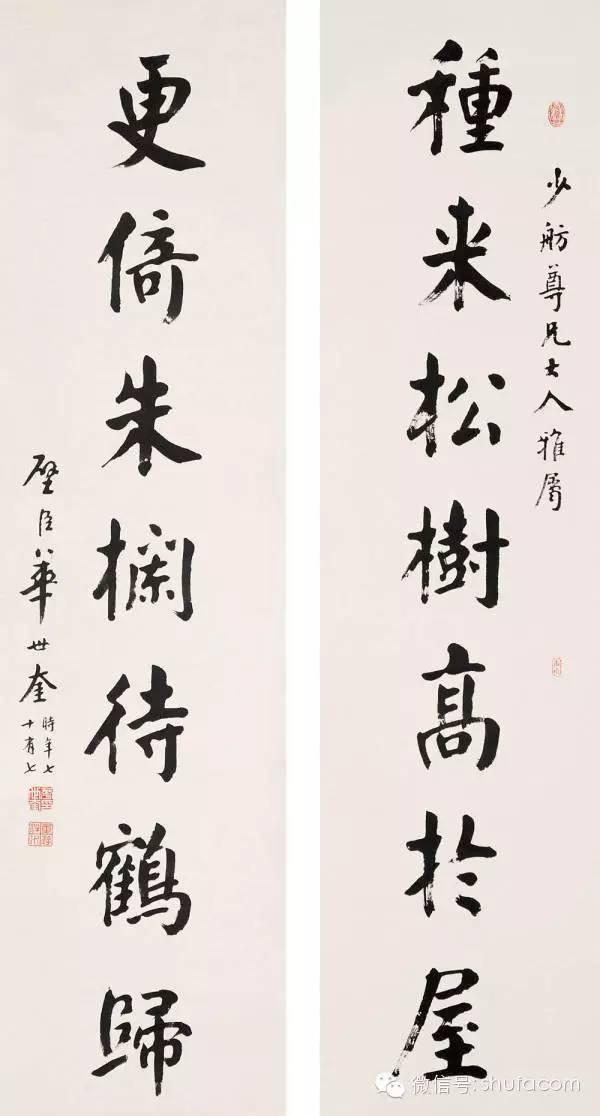 少舫尊兄大人雅屬
種来松樹高於屋
更倚朱欄待鶴歸
壁臣華世奎時年七
十有七
微信号: shufacom